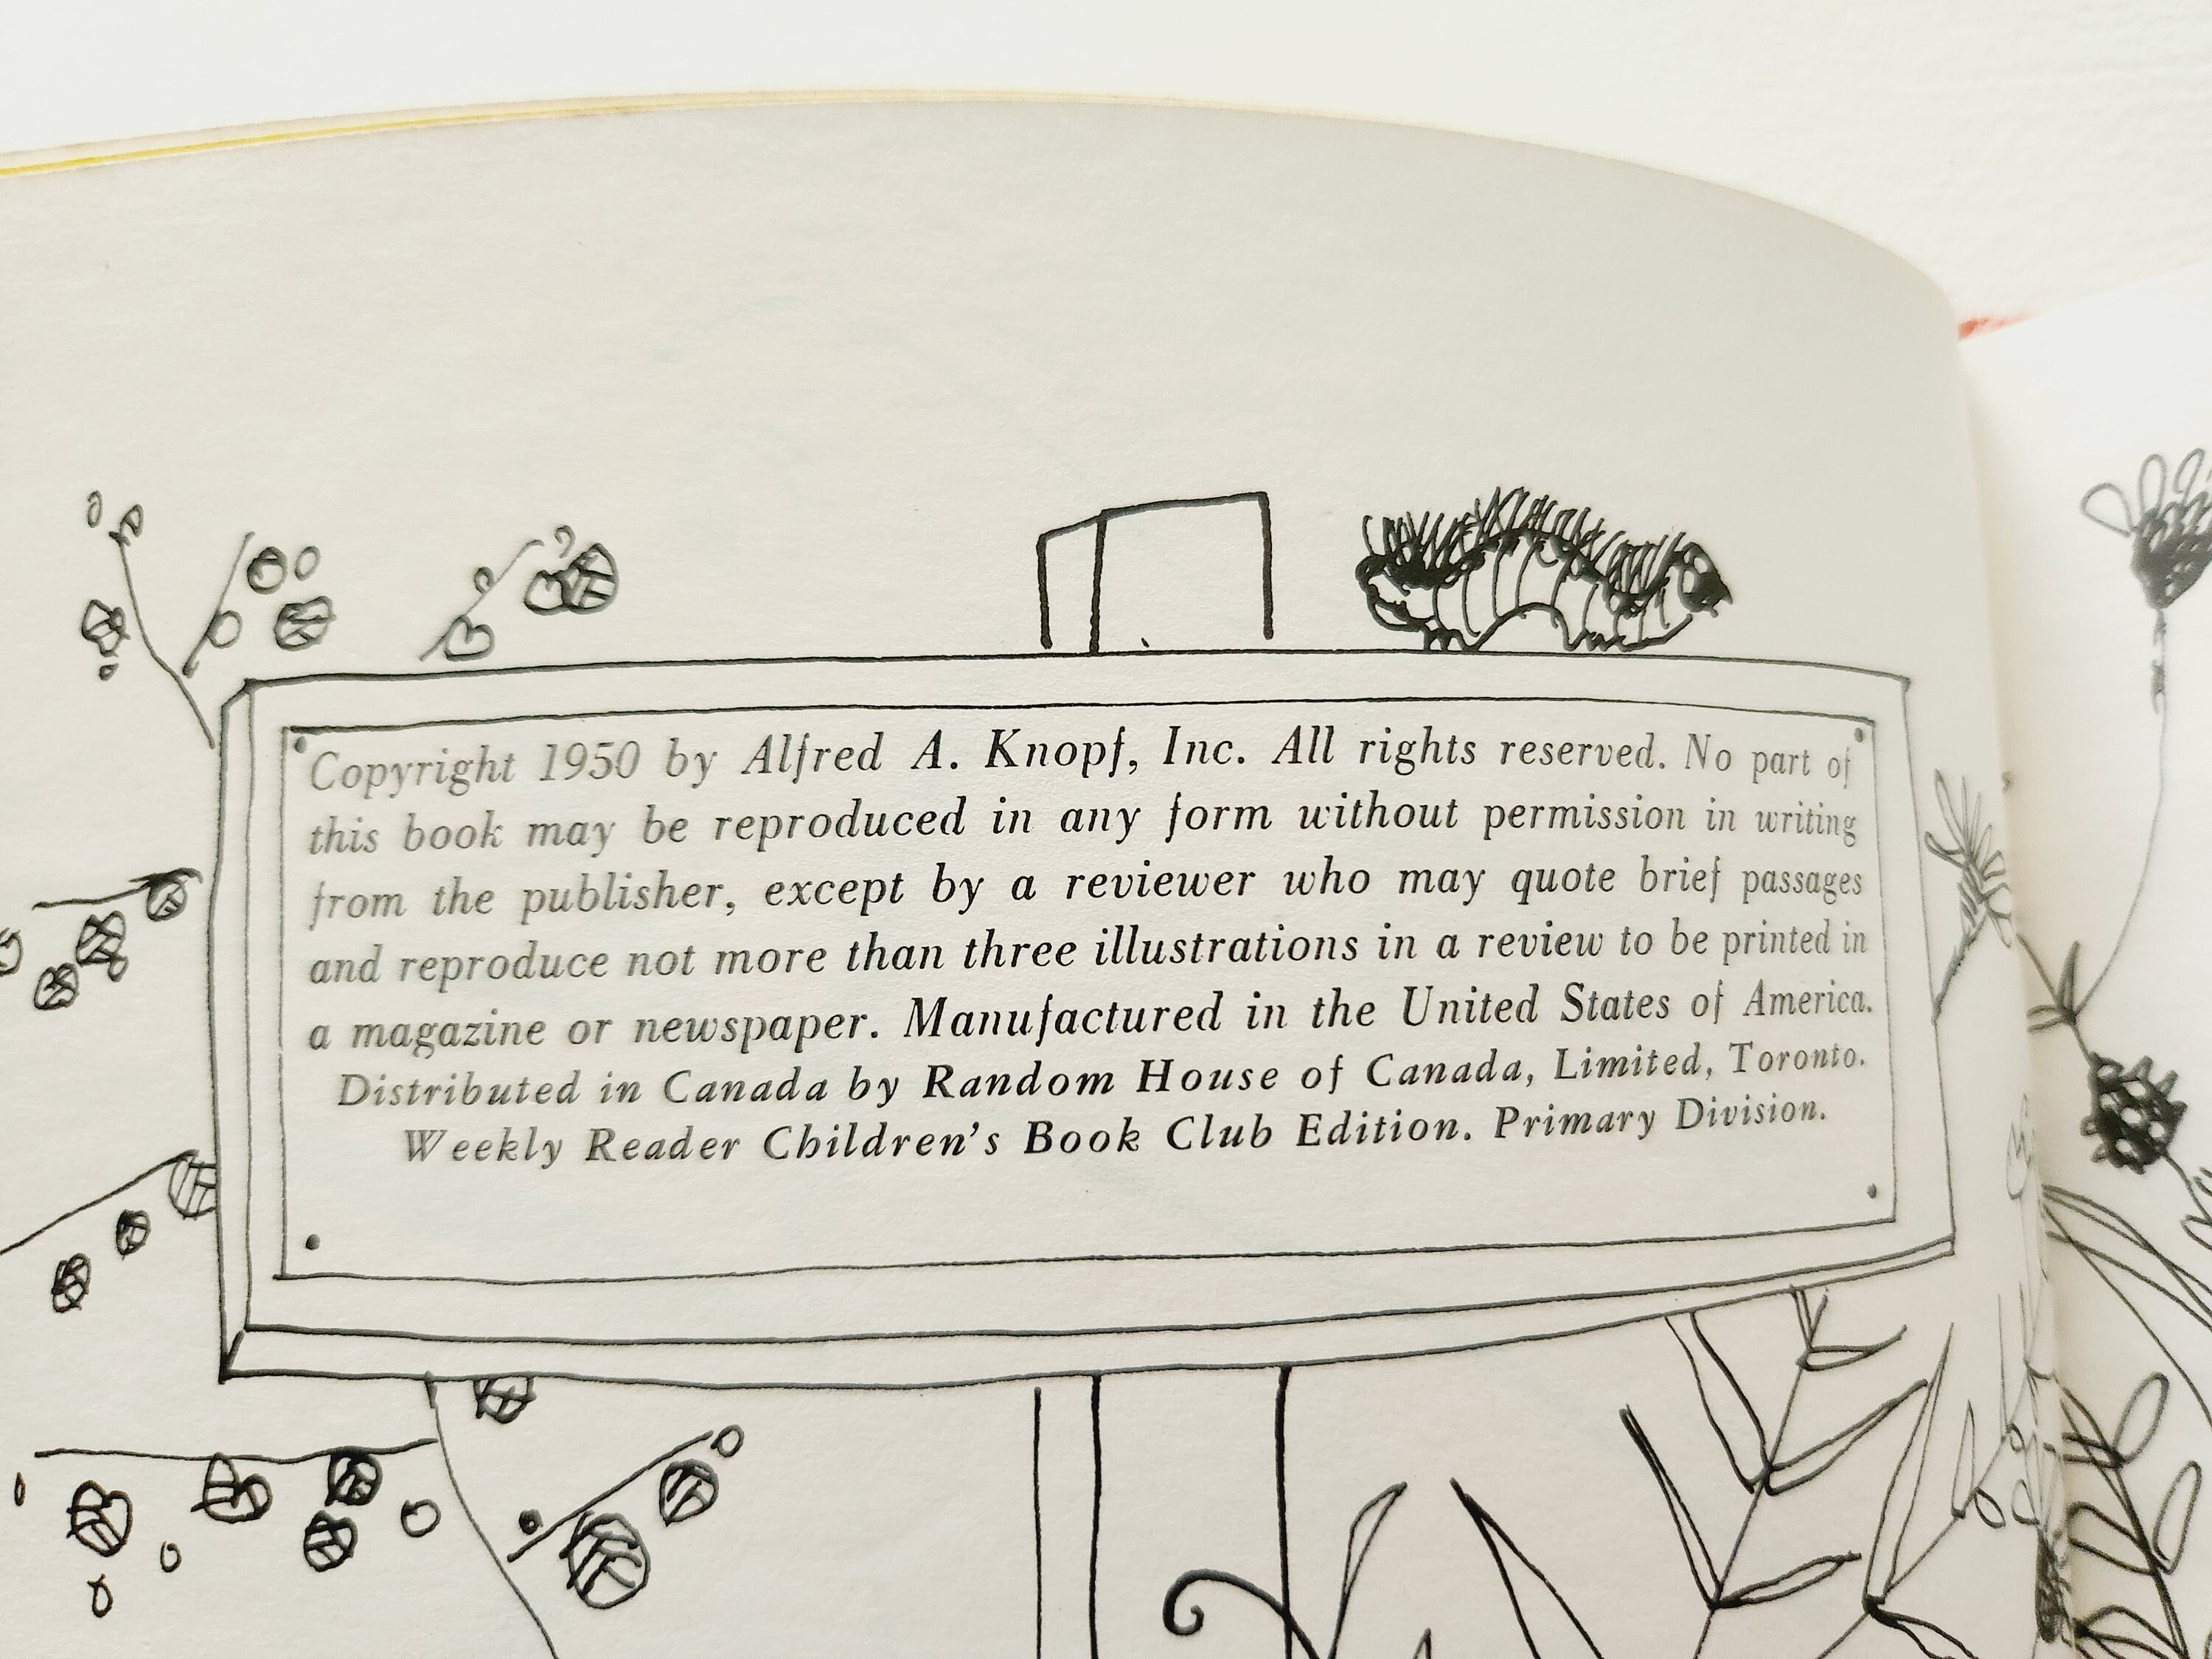 Copyright 1950 by Alfred A. Knopf, Inc. All rights reserved. No part of
this book may be reproduced in any form without permission in writing
from the publisher, except by a reviewer who may quote brief passages
and reproduce not more than three illustrations in a review to be printed in
a magazine or newspaper. Manufactured in the United States of America.
Distributed in Canada by Random House of Canada, Limited, Toronto.
Weekly Reader Children's Book Club Edition. Primary Division.